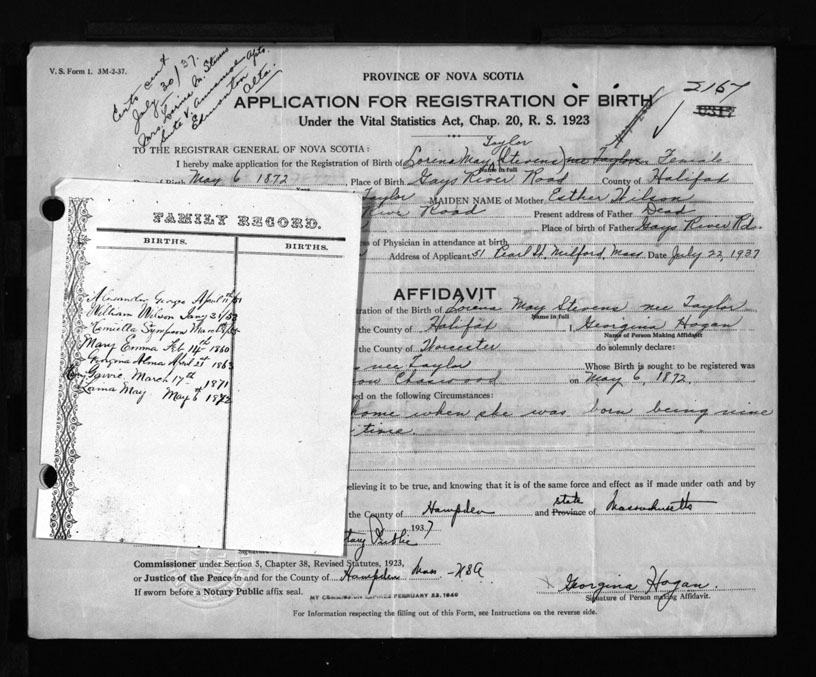 V. S. Form 1. 3M-2-37.
July 20/37.
Mrs Lorina M. Stevens
Edmonton
Alta.
PROVINCE OF NOVA SCOTIA
2167
APPLICATION FOR REGISTRATION OF BIRTH
Under the Vital Statistics Act, Chap. 20, R. S. 1923
TO THE REGISTRAR GENERAL OF NOVA SCOTIA:
Taylor
I hereby make application for the Registration of Birth of Lorena May (Stevens) nee Taylor Female
Name in full
May 6 1872, Place of Birth Gays River Road County of Halifax
Taylor MAIDEN NAME of Mother Esther Wilson
River Road Present address of Father Dead
Place of birth of Father Gays River Rd.
of Physician in attendance at birth
Address of Applicant 51 Pearl St. Milford, Mass. Date July 22, 1937
AFFIDAVIT
tration of the Birth of Lorena May Stevens nee Taylor
Name in full
the County of Halifax I, Georgina Hogan
Name of Person Making Affidavit
the County of Worcester do solemnly declare:
nee Taylor Whose Birth is sought to be registered was
on May 6, 1872.
on the following Circumstances:
home when she was born being nine
time.
elieving it to be true, and knowing that it is of the same force and effect as if made under oath and by
the County of Hampden and Province of state Massachusetts
1937
tary Public
Commissioner under Section 5, Chapter 38, Revised Statutes, 1923,
or Justice of the Peace in and for the County of Hampden Mass - USA
If sworn before a Notary Public affix seal.
MY COMMISSION EXPIRES FEBRUARY 23, 1940
Georgina Hogan.
Signature of Person making Affidavit.
For Information respecting the filling out of this Form, see Instructions on the reverse side.
FAMILY RECORD.
BIRTHS. BIRTHS.
Alexander George April 11th
William Wilson Jany 21
Mary Emma Feb 14th 1860
Georgina Alma April 21st 1863
March 17th 1871
Lorina May May 6 1872